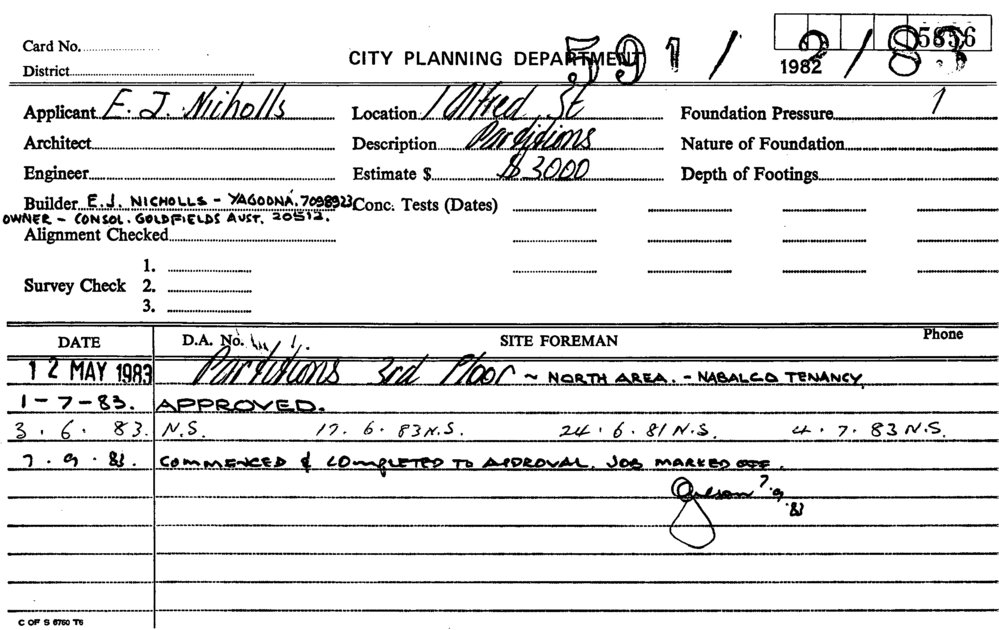 5856
Card No.
CITY PLANNING DEPARTMENT 591/2/83
District
1982
Applicant E. J. Nicholls Location 1 Alfred St Foundation Pressure 1
Architect Description Partitions Nature of Foundation
Engineer Estimate $ $3000 Depth of Footings
Builder E.J. NICHOLLS - YAGOONA. 7098923 Conc. Tests (Dates)
OWNER - CONSOL. GOLDFIELDS AUST. 20512.
Alignment Checked
1.
Survey Check 2.
3.
DATE D.A. No. SITE FOREMAN Phone
12 MAY 1983 Partitions 3rd Floor ~ NORTH AREA. - NABALCO TENANCY
1-7-83. APPROVED.
3.6.83. N.S. 17.6.83 N.S. 24.6.81 N.S. 4.7.83 N.S.
7.9.83. COMMENCED & COMPLETED TO APPROVAL. JOB MARKED OFF.
7.9.83
C OF S 6760 T6